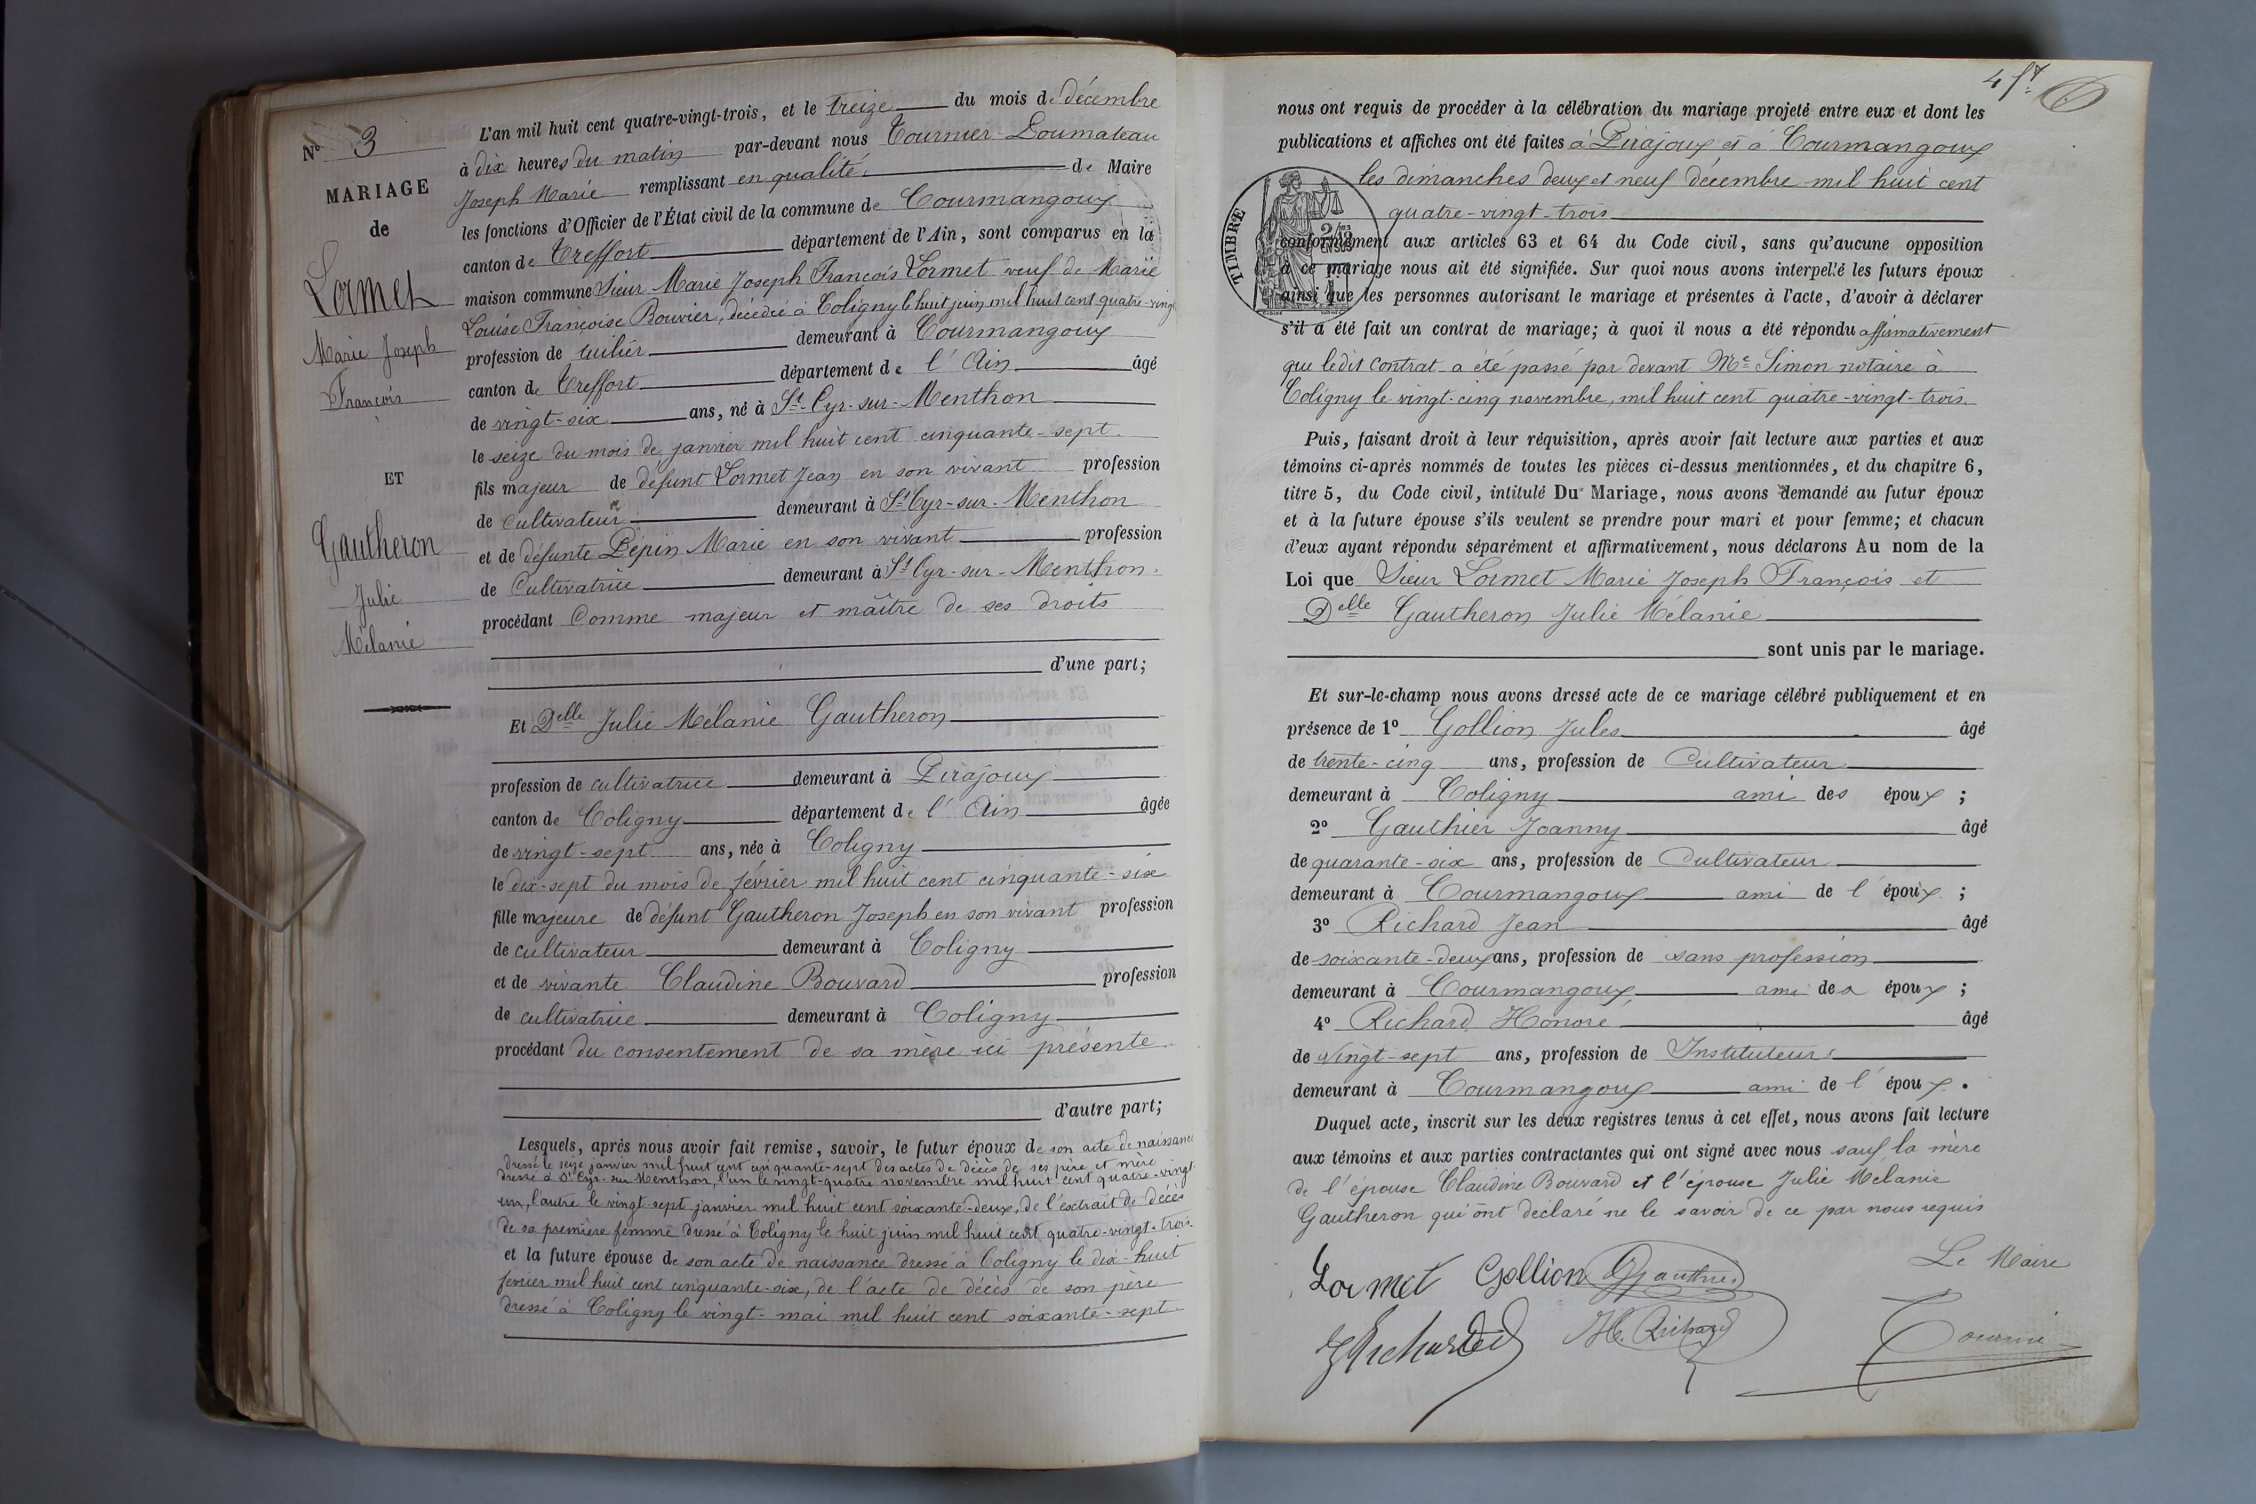 N° 3
MARIAGE
de
Lormet
Marie Joseph
François
ET
Gautheron
Julie
Mélanie
L'an mil huit cent quatre-vingt-trois, et le treize du mois de décembre
à dix heures du matin par-devant nous Tournier-Loumateau
Joseph Marie remplissant en qualité de Maire
les fonctions d'Officier de l'État civil de la commune de Courmangoux
canton de Treffort département de l'Ain, sont comparus en la
maison commune Sieur Marie Joseph François Lormet veuf de Marie
Louise Françoise Bouvier, décédée à Coligny le huit juin mil huit cent quatre-vingt
profession de tuilier demeurant à Courmangoux
canton de Treffort département de l'Ain âgé
de vingt-six ans, né à St-Cyr-sur-Menthon
le seize du mois de janvier mil huit cent cinquante-sept
fils majeur de défunt Lormet Jean en son vivant profession
de cultivateur demeurant à St-Cyr-sur-Menthon
et de défunte Pépin Marie en son vivant profession
de Cultivatrice demeurant à St Cyr-sur-Menthon.
procédant Comme majeur et maître de ses droits
d'une part;
Et Delle Julie Mélanie Gautheron
profession de cultivatrice demeurant à Pirajoux
canton de Coligny département de l'Ain âgée
de vingt-sept ans, née à Coligny
le dix-sept du mois de février mil huit cent cinquante-six
fille majeure de défunt Gautheron Joseph en son vivant profession
de cultivateur demeurant à Coligny
et de vivante Claudine Bouvard profession
de cultivatrice demeurant à Coligny
procédant du consentement de sa mère ici présente
d'autre part;
Lesquels, après nous avoir fait remise, savoir, le futur époux de son acte de naissance
dressé le seize janvier mil huit cent cinquante-sept des actes de décès de ses père et mère
dressé à St Cyr-sur Menthon, l'un le vingt-quatre novembre mil huit cent quatre-vingt-
un, l'autre le vingt-sept janvier mil huit cent soixante-deux, de l'extrait de décès
de sa première femme dressé à Coligny le huit juin mil huit cent quatre-vingt-trois.
et la future épouse de son acte de naissance dressé à Coligny le dix-huit
février mil huit cent cinquante-six, de l'acte de décès de son père
dressé à Coligny le vingt-mai mil huit cent soixante-sept
nous ont requis de procéder à la célébration du mariage projeté entre eux et dont les
publications et affiches ont été faites à Pirajoux et à Courmangoux
les dimanches deux et neuf décembre mil huit cent
quatre-vingt-trois
TIMBRE
conformément aux articles 63 et 64 du Code civil, sans qu'aucune opposition
à ce mariage nous ait été signifiée. Sur quoi nous avons interpellé les futurs époux
ainsi que les personnes autorisant le mariage et présentes à l'acte, d'avoir à déclarer
s'il a été fait un contrat de mariage; à quoi il nous a été répondu affirmativement
que ledit Contrat a été passé par devant Me Simon notaire à
Coligny le vingt-cinq novembre, mil huit cent quatre-vingt-trois.
Puis, faisant droit à leur réquisition, après avoir fait lecture aux parties et aux
témoins ci-après nommés de toutes les pièces ci-dessus mentionnées, et du chapitre 6,
titre 5, du Code civil, intitulé Du Mariage, nous avons demandé au futur époux
et à la future épouse s'ils veulent se prendre pour mari et pour femme; et chacun
d'eux ayant répondu séparément et affirmativement, nous déclarons Au nom de la
Loi que Sieur Lormet Marie Joseph François et
Delle Gautheron Julie Mélanie
sont unis par le mariage.
Et sur-le-champ nous avons dressé acte de ce mariage célébré publiquement et en
présence de 1° Gollion Jules âgé
de trente-cinq ans, profession de Cultivateur
demeurant à Coligny ami des époux ;
2° Gauthier Joanny âgé
de quarante-six ans, profession de Cultivateur
demeurant à Courmangoux ami de l'époux ;
3° Richard Jean âgé
de soixante-deux ans, profession de sans profession
demeurant à Courmangoux ami des époux ;
4° Richard Honoré âgé
de vingt-sept ans, profession de Instituteur
demeurant à Courmangoux ami de l'époux.
Duquel acte, inscrit sur les deux registres tenus à cet effet, nous avons fait lecture
aux témoins et aux parties contractantes qui ont signé avec nous sauf la mère
de l'épouse Claudine Bouvard et l'épouse Julie Mélanie
Gautheron qui ont déclaré ne le savoir de ce par nous requis
Le Maire
Lormet Gollion Gauthier
Richard H. Richard Tournier